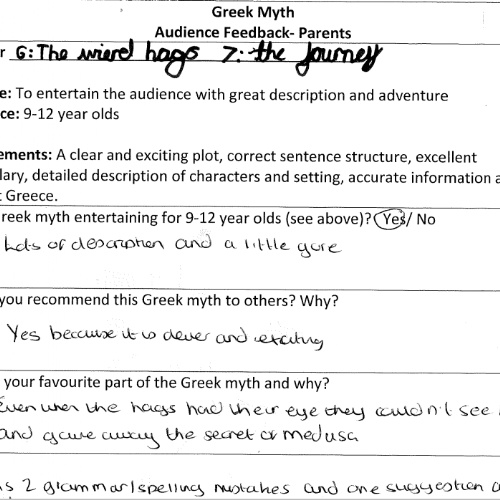 Greek Myth
Audience Feedback- Parents
r 6: The wierd hags 7: the journey
e: To entertain the audience with great description and adventure
ce: 9-12 year olds
ements: A clear and exciting plot, correct sentence structure, excellent
lary, detailed description of characters and setting, accurate information a
t Greece.
reek myth entertaining for 9-12 year olds (see above)? Yes/ No
Lots of description and a little gore
you recommend this Greek myth to others? Why?
Yes because it is clever and exciting
your favourite part of the Greek myth and why?
Even when the hags had their eye they couldn't see
and gave away the secret of medusa
s 2 grammar/spelling mistakes and one suggestion